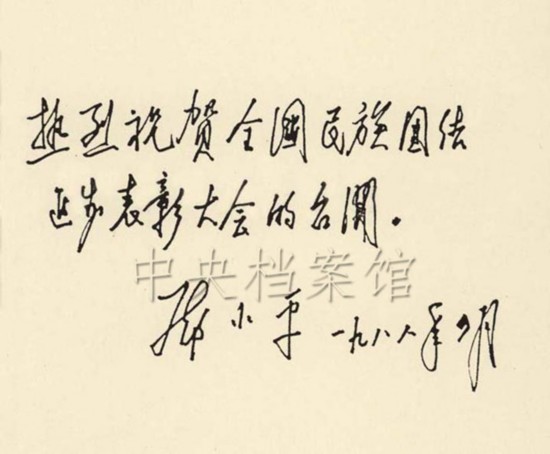 热烈祝贺全国民族团结
进步表彰大会的召开。
中央档案馆
邓小平 一九八八年 月